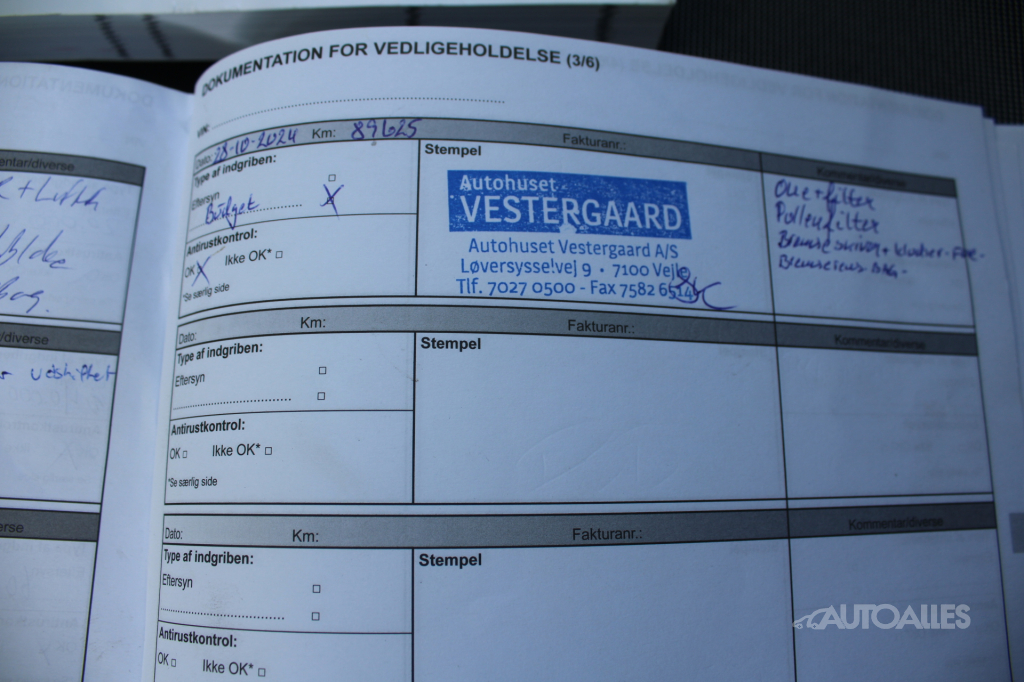 DOKUMENTATION FOR VEDLIGEHOLDELSE (3/6)
VIN:
Dato: 28-10-2024 Km: 89625 Fakturanr.:
Type af indgriben:
Eftersyn
Budget X
Antirustkontrol:
OK X Ikke OK*
*Se særlig side
Stempel
Autohuset
VESTERGAARD
Autohuset Vestergaard A/S
Løversysselvej 9 · 7100 Vejle
Tlf. 7027 0500 - Fax 7582 6514
Kommentar/diverse
Olie + filter
Pollenfilter
Bremse skiver + klodser - For -
Dato: Km: Fakturanr.: Kommentar/diverse
Type af indgriben:
Eftersyn
Antirustkontrol:
OK Ikke OK*
*Se særlig side
Stempel
Dato: Km: Fakturanr.: Kommentar/diverse
Type af indgriben:
Eftersyn
Antirustkontrol:
OK Ikke OK*
Stempel
entar/diverse
/diverse
udskiftet
erse
AUTOALLES